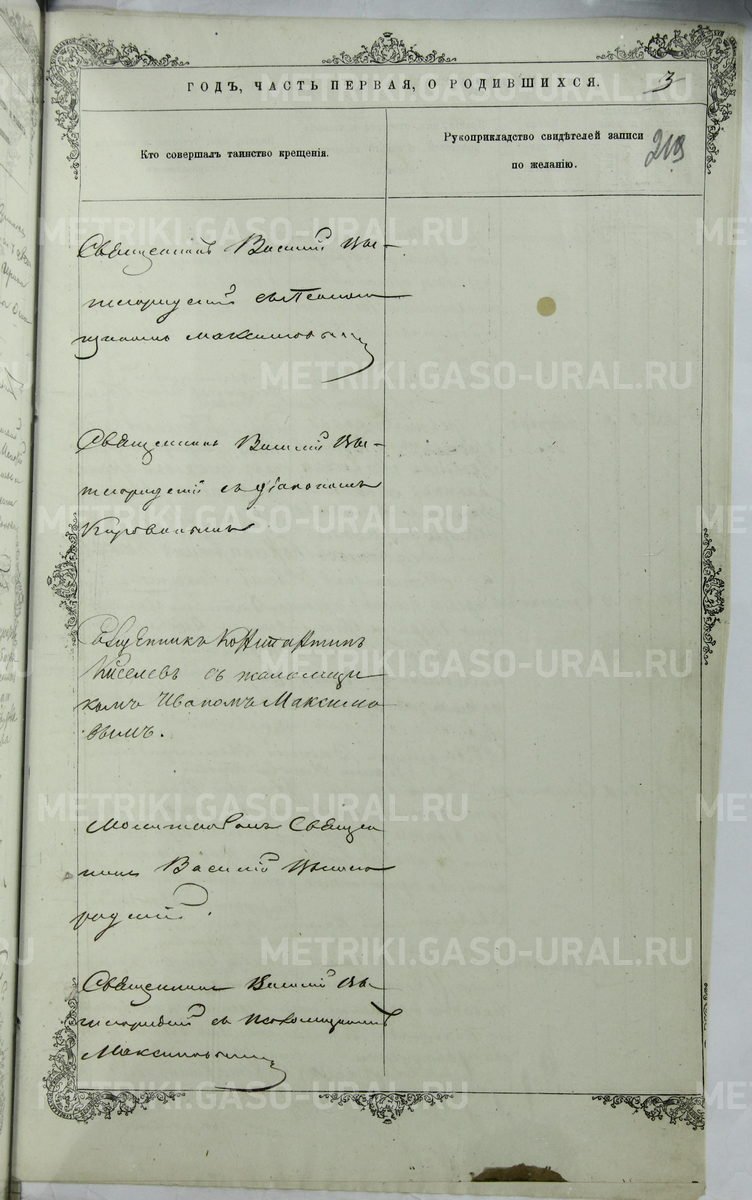 ГОДЪ, ЧАСТЬ ПЕРВАЯ, О РОДИВШИХСЯ.
3
Кто совершалъ таинство крещенія.
Рукоприкладство свидѣтелей записи
по желанію.
219
Священникъ Василій Вы-
шегородскій съ Псалом
щикомъ Максимовымъ
Священникъ Василій Вы-
шегородскій съ діакономъ
Священникъ Константинъ
Киселевъ съ псаломщи
комъ Иваномъ Максимо
вымъ.
Молитвовалъ Священ
никъ Василій Вышего
родскій.
Священникъ Василій Вы-
шегородскій съ Псаломщикомъ
Максимовымъ
METRIKI.GASO-URAL.RU